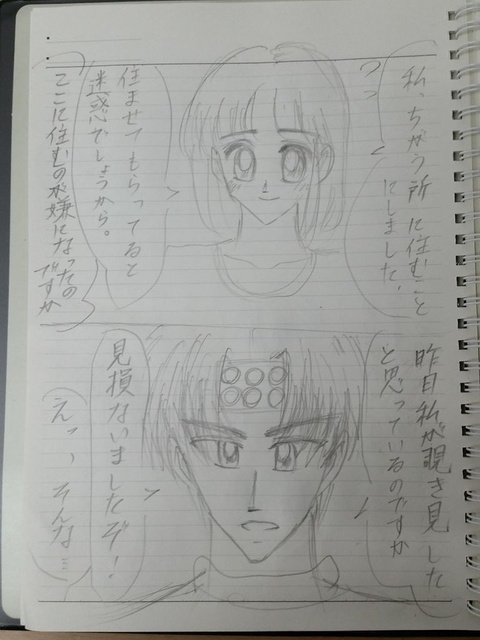 私っちがう所に住むこと
にしました。
住ませてもらってると
迷惑でしょうから。
ここに住むのが嫌になったの
ですか
昨日私が覗き見した
と思っているのですか
見損ないましたぞ!
えっ、そんな…